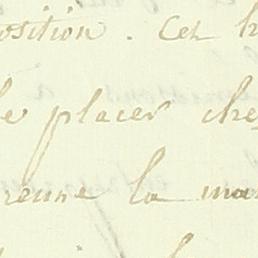 osition. Cet h
le placer che
renne la ma